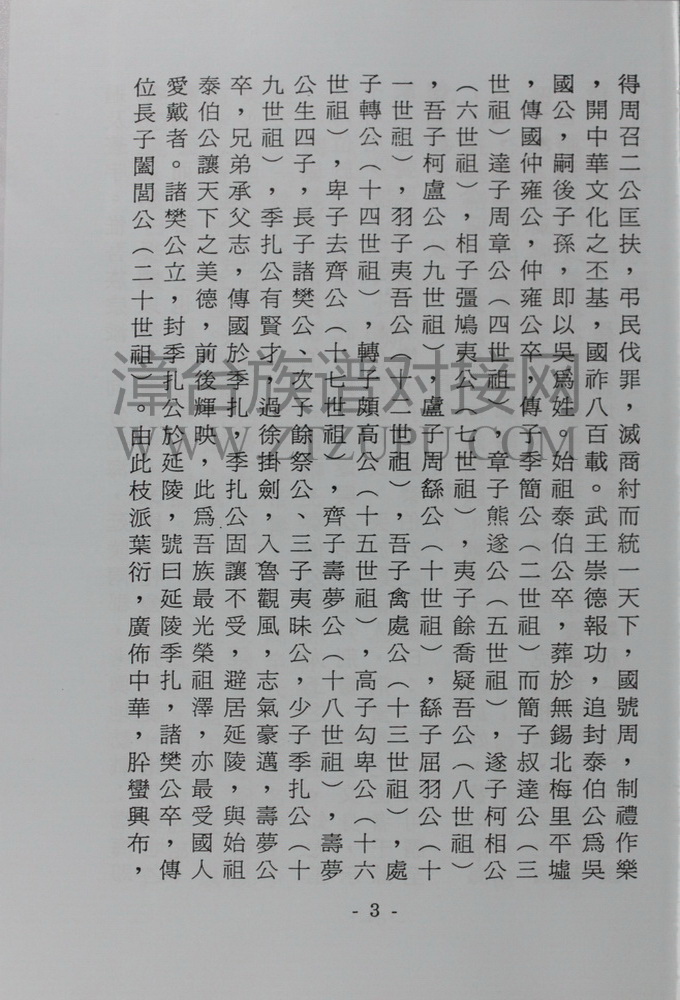 得周召二公匡扶，弔民伐罪，滅商紂而統一天下，國號周，制禮作樂
，開中華文化之丕基，國祚八百載。武王崇德報功，追封泰伯公爲吳
國公，嗣後子孫，即以吳爲姓。始祖泰伯公卒，葬於無錫北梅里平墟
，傳國仲雍公，仲雍公卒，傳子季簡公（二世祖）而簡子叔達公（三
世祖）達子周章公（四世祖），章子熊遂公（五世祖），遂子柯相公
（六世祖），相子彊鳩夷公（七世祖），夷子餘喬疑吾公（八世祖）
，吾子柯盧公（九世祖），盧子周繇公（十世祖），繇子屈羽公（十
一世祖），羽子夷吾公（十二世祖），吾子禽處公（十三世祖），處
子轉公（十四世祖），轉子頗高公（十五世祖），高子勾卑公（十六
世祖），卑子去齊公（十七世祖），齊子壽夢公（十八世祖），壽夢
公生四子，長子諸樊公、次子餘祭公、三子夷昧公，少子季扎公（十
九世祖），季扎公有賢才，過徐掛劍，入魯觀風，志氣豪邁，壽夢公
卒，兄弟承父志，傳國於季扎，季扎公固讓不受，避居延陵，與始祖
泰伯公讓天下之美德，前後輝映，此爲吾族最光榮祖澤，亦最受國人
愛戴者。諸樊公立，封季扎公於延陵，號曰延陵季扎，諸樊公卒，傳
位長子闔閭公（二十世祖）。由此枝派葉衍，廣佈中華，肸蠁興布，
- 3 -
漳台族谱对接网
WWW.ZTZUPU.COM